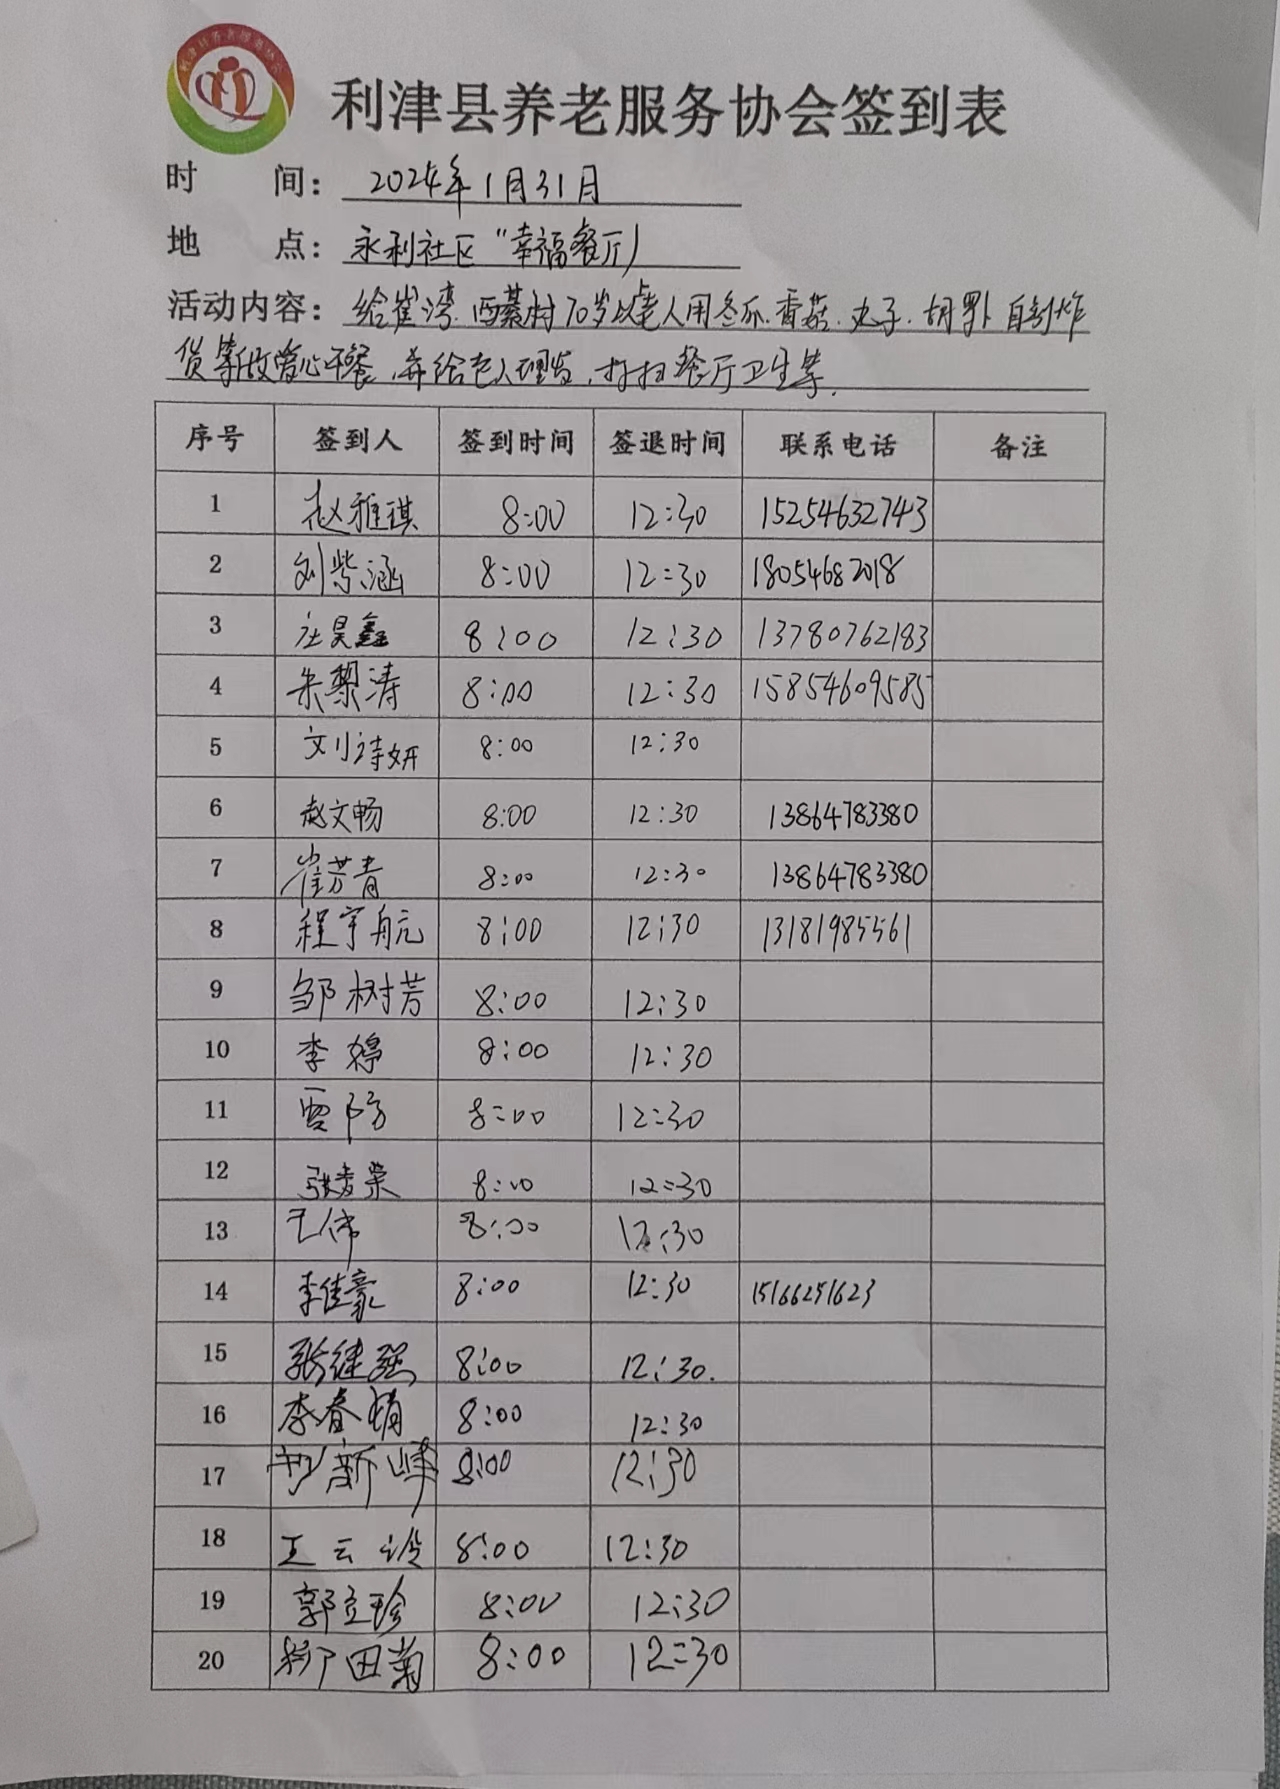 利津县养老服务协会
利津县养老服务协会签到表
时 间：2024年1月31日
地 点：永利社区"幸福餐厅"
活动内容：给崔湾、西綦村70岁以上老人用冬瓜、香菇、丸子、胡萝卜、自制炸
货等做爱心午餐，并给老人理发，打扫餐厅卫生等.
序号 签到人 签到时间 签退时间 联系电话 备注
1 赵雅琪 8:00 12:30 15254632743
2 刘紫涵 8:00 12:30 18054682018
3 昊鑫 8:00 12:30 13780762183
4 朱黎涛 8:00 12:30 15854609585
5 刘诗妍 8:00 12:30
6 赵文畅 8:00 12:30 13864783380
7 崔芳青 8:00 12:30 13864783380
8 程宇航 8:00 12:30 13181985561
9 邹树芳 8:00 12:30
10 李婷 8:00 12:30
11 贾防 8:00 12:30
12 张荣 8:00 12:30
13 伟 8:00 12:30
14 李佳豪 8:00 12:30 15166251623
15 张继强 8:00 12:30.
16 李春娟 8:00 12:30
17 新峰 8:00 12:30
18 王云 8:00 12:30
19 郭立珍 8:00 12:30
20 田菊 8:00 12:30